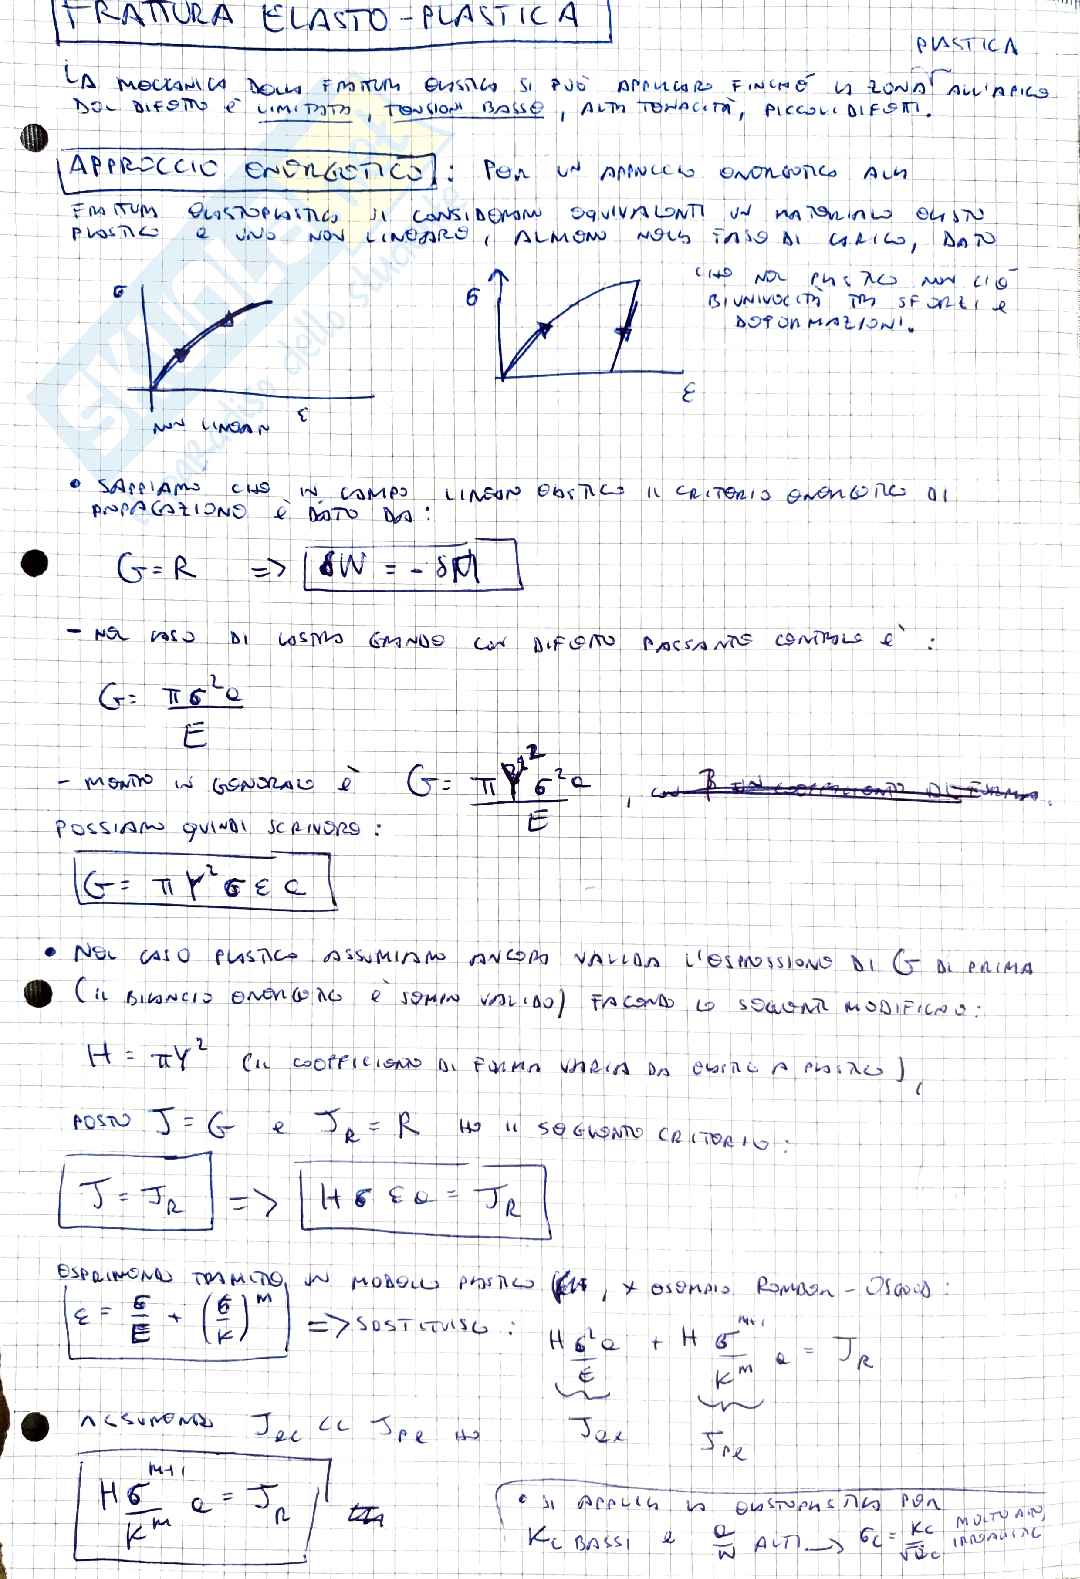 FRATTURA ELASTO-PLASTICA
PLASTICA
LA MECCANICA DELLA FRATTURA ELASTICA SI PUÒ APPLICARE FINCHÉ LA ZONA ALL'APICE
DEL DIFETTO È LIMITATA, TENSIONI BASSE, ALTA TENACITÀ, PICCOLI DIFETTI.
APPROCCIO ENERGETICO: PER UN APPROCCIO ENERGETICO ALLA
FRATTURA ELASTOPLASTICA SI CONSIDERANO EQUIVALENTI UN MATERIALE ELASTO
PLASTICO E UNO NON LINEARE, ALMENO NELLA FASE DI CARICO, DATO
CHE NEL PLASTICO NON C'È
BIUNIVOCITÀ TRA SFORZI E
DEFORMAZIONI.
σ
ε
NON LINEAR
σ
ε
• SAPPIAMO CHE IN CAMPO LINEARE ELASTICO IL CRITERIO ENERGETICO DI
PROPAGAZIONE È DATO DA:
G = R => δW = - δΠ
- NEL CASO DI LASTRA GRANDE CON DIFETTO PASSANTE CENTRALE È:
G = πσ²a / E
- MENTRE IN GENERALE È G = πY²σ²a / E ,
POSSIAMO QUINDI SCRIVERE:
G = πY²σεa
• NEL CASO PLASTICO ASSUMIAMO ANCORA VALIDA L'ESPRESSIONE DI G DI PRIMA
(IL BILANCIO ENERGETICO È SEMPRE VALIDO) FACENDO LE SEGUENTI MODIFICHE:
H = πY² (IL COEFFICIENTE DI FORMA VARIA DA ELASTICO A PLASTICO),
POSTO J = G e J_R = R HO IL SEGUENTE CRITERIO:
J = J_R => Hσεa = J_R
ESPRIMENDO TRAMITE UN MODELLO PLASTICO, X ESEMPIO RAMBERG-OSGOOD:
ε = σ/E + (σ/K)^M => SOSTITUISCO: Hσ²a/E + Hσ^(M+1)/K^M a = J_R
J_el
J_pl
ASSUMENDO J_el << J_pl HO
Hσ^(M+1)/K^M a = J_R
• SI APPLICA LA ELASTOPLASTICA PER
K_C BASSI e a/W ALTI → σ_C = K_C/√a_C MOLTO